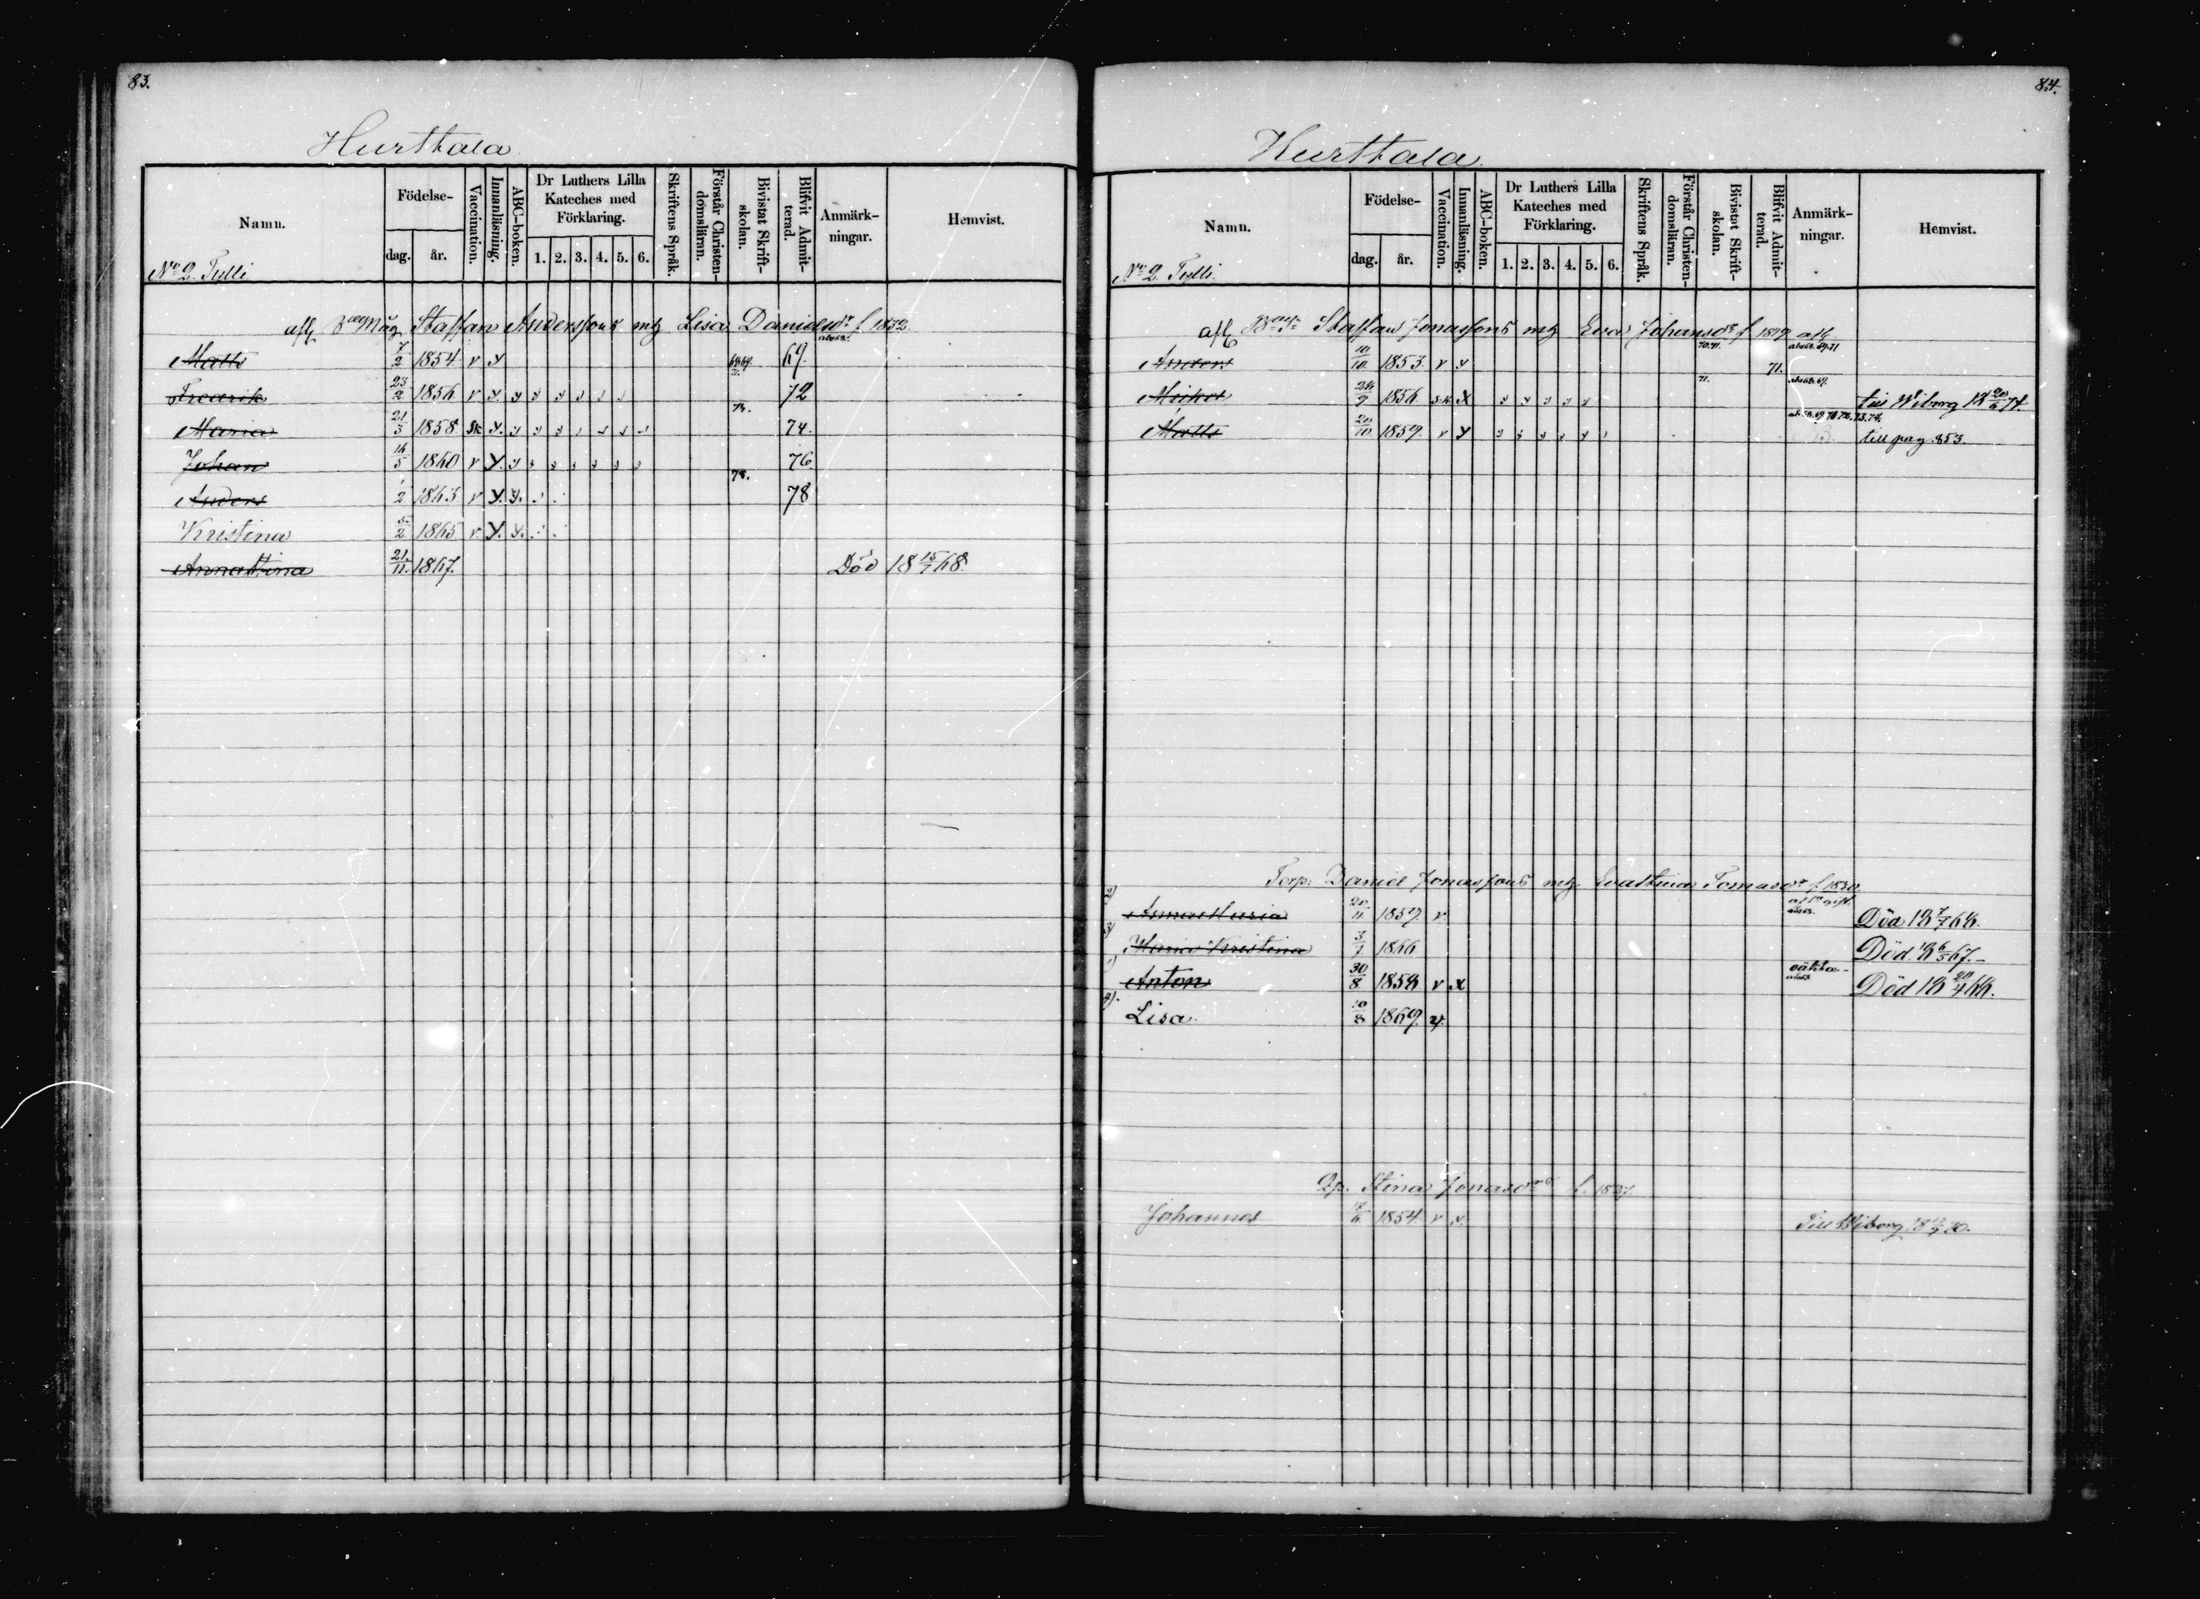 83.
Hurttala
Namn.
Födelse-
dag.
år.
Vaccination.
Innanläsning.
ABC-boken.
Dr Luthers Lilla Kateches med Förklaring.
1. 2. 3. 4. 5. 6.
Skriftens Språk.
Förstår Christendomsläran.
Bivistat Skriftskolan.
Blifvit Admitterad.
Anmärkningar.
Hemvist.
No 2 Tylli
Staffan Anderssons Lisa Danielsdr f. 1832.
Matts 7/2 1854. v y 69.
Fredrik 23/2 1856. v y. y 72
Maria 21/3 1858. sk y. y 73. 74.
Johan 16/5 1860 v y. y 76
Anders 1/2 1863 v y. y. 78. 78
Kristina 5/2 1865 v. y. y.
Anna Stina 21/11 1867. Död 18 15/7 68.
84.
Hurttala
Namn.
Födelse-
dag.
år.
Vaccination.
Innanläsning.
ABC-boken.
Dr Luthers Lilla Kateches med Förklaring.
1. 2. 3. 4. 5. 6.
Skriftens Språk.
Förstår Christendomsläran.
Bivistat Skriftskolan.
Blifvit Admitterad.
Anmärkningar.
Hemvist.
No 2 Tylli.
Staffan Jonassons Eva Johansdr f.
Anders 10/10 1853. v y 70.71. 71.
Mickel 24/9 1856 x 71. till Wiborg 18 20/6 74.
Matts 20/10 1859. v y till pag. 853
Torp: Daniel Jonassons Evastina Tomasdr f. 1830.
2) Anna Maria 20/11 1859. v. Död 18 7/7 68.
3) Maria Kristina 3/1 1866 Död 18 6/5 67.
1) Anton 30/8 1858 v x Död 18 20/4 68.
4). Lisa 10/8 1869.
Stina Jonasdr f. 1827.
Johannes 1854 v Till Wiborg